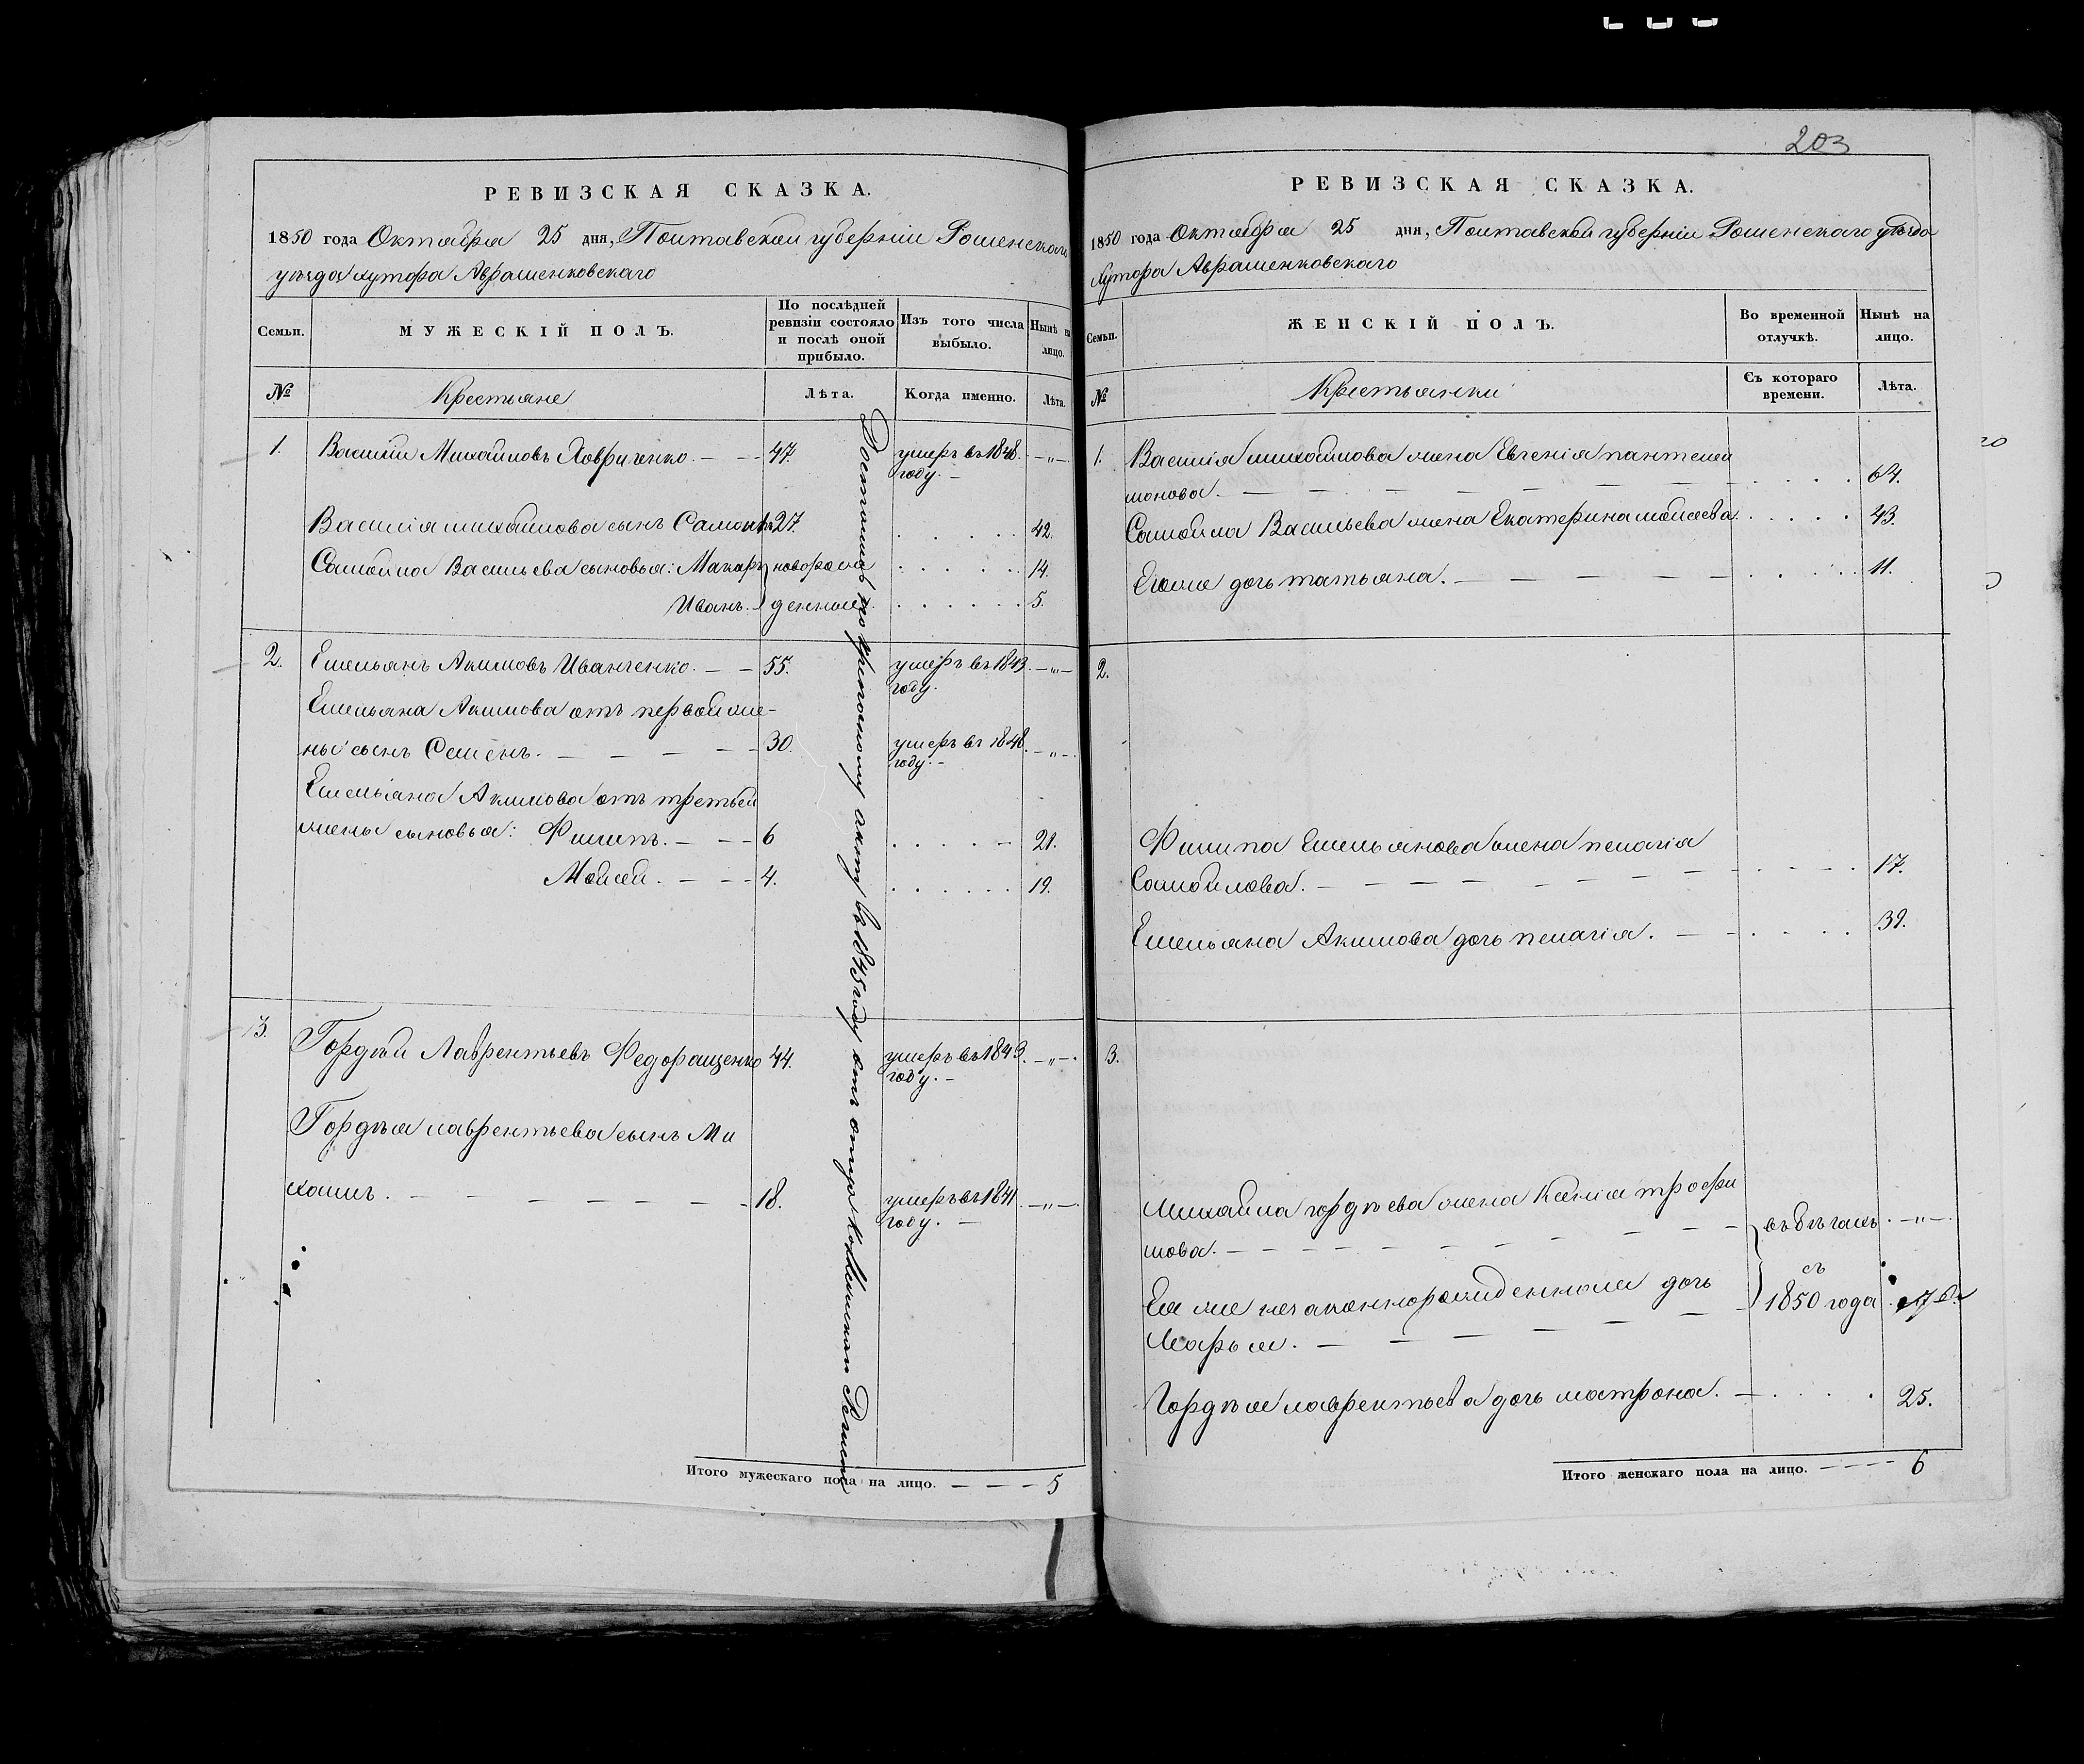 203
РЕВИЗСКАЯ СКАЗКА.
1850 года Октября 25 дня, Полтавской губерніи Роменскаго
уѣзда хутора Аврашенковскаго
Семьи.
МУЖЕСКІЙ ПОЛЪ.
По послѣдней ревизіи состояло и послѣ оной прибыло.
Изъ того числа выбыло.
Нынѣ на лицо.
№
Крестьяне
Лѣта.
Когда именно.
Лѣта.
1. Василій Михайловъ Лавриченко. — — 47. умеръ въ 1848. —„—
году. —
Василія михайлова сынъ Самойла 27. . . . . . 42.
Самойла Васильева сыновья: Макаръ новорож . . . . . . 14.
Иванъ. денные. . . . . . . 5.
2. Емельянъ Акимовъ Иванченко. — — 55. умеръ въ 1843. —„—
году.
Емельяна Акимова отъ первой же-
ны сынъ Семенъ. — — — — — 30. умеръ въ 1848. —„—
году. —
Емельяна Акимова отъ третьей
жены сыновья: Филипъ. — — — 6 . . . . — 21.
Мойсей. — — — 4. . . . . . . 19.
3. Гордѣй Лаврентьевъ Федоращенко 44. умеръ въ 1843. —„—.
году. —
Гордѣя лаврентьева сынъ Ми
хаилъ. — — — — — — — 18. умеръ въ 1841. —„—.
году. —
Достались по крѣпостному акту въ 1845 году отъ отца
Итого мужескаго пола на лицо. — — — 5
РЕВИЗСКАЯ СКАЗКА.
1850 года Октября 25 дня, Полтавской губерніи Роменскаго уѣзда
Хутора Аврашенковскаго
Семьи.
ЖЕНСКІЙ ПОЛЪ.
Во временной отлучкѣ.
Нынѣ на лицо.
№
Крестьянки
Съ котораго времени.
Лѣта.
1. Василія михайлова жена Евгенія пантелей
монова. — — — — — — — . . . . 64.
Самойла Васильева жена Екатерина мойсеева. . . . . . 43.
Егоже дочь татьяна. — — — — — . . . . . 11.
2.
Филипа Емельянова жена пелагія
Самойлова. — — — — — — — . . . . 17.
Емельяна Акимова дочь пелагія. — — . . . . 39.
3.
Михайла гордѣева жена Ксенія трофи
мова. — — — — — — — — въ бѣгахъ. —„—.
съ
Ея же незаконнорожденная дочь 1850 года
Марья. — — — — — —
Гордѣя лаврентьева дочь матрона. — . . . . 25.
Итого женскаго пола на лицо. — — — — 6